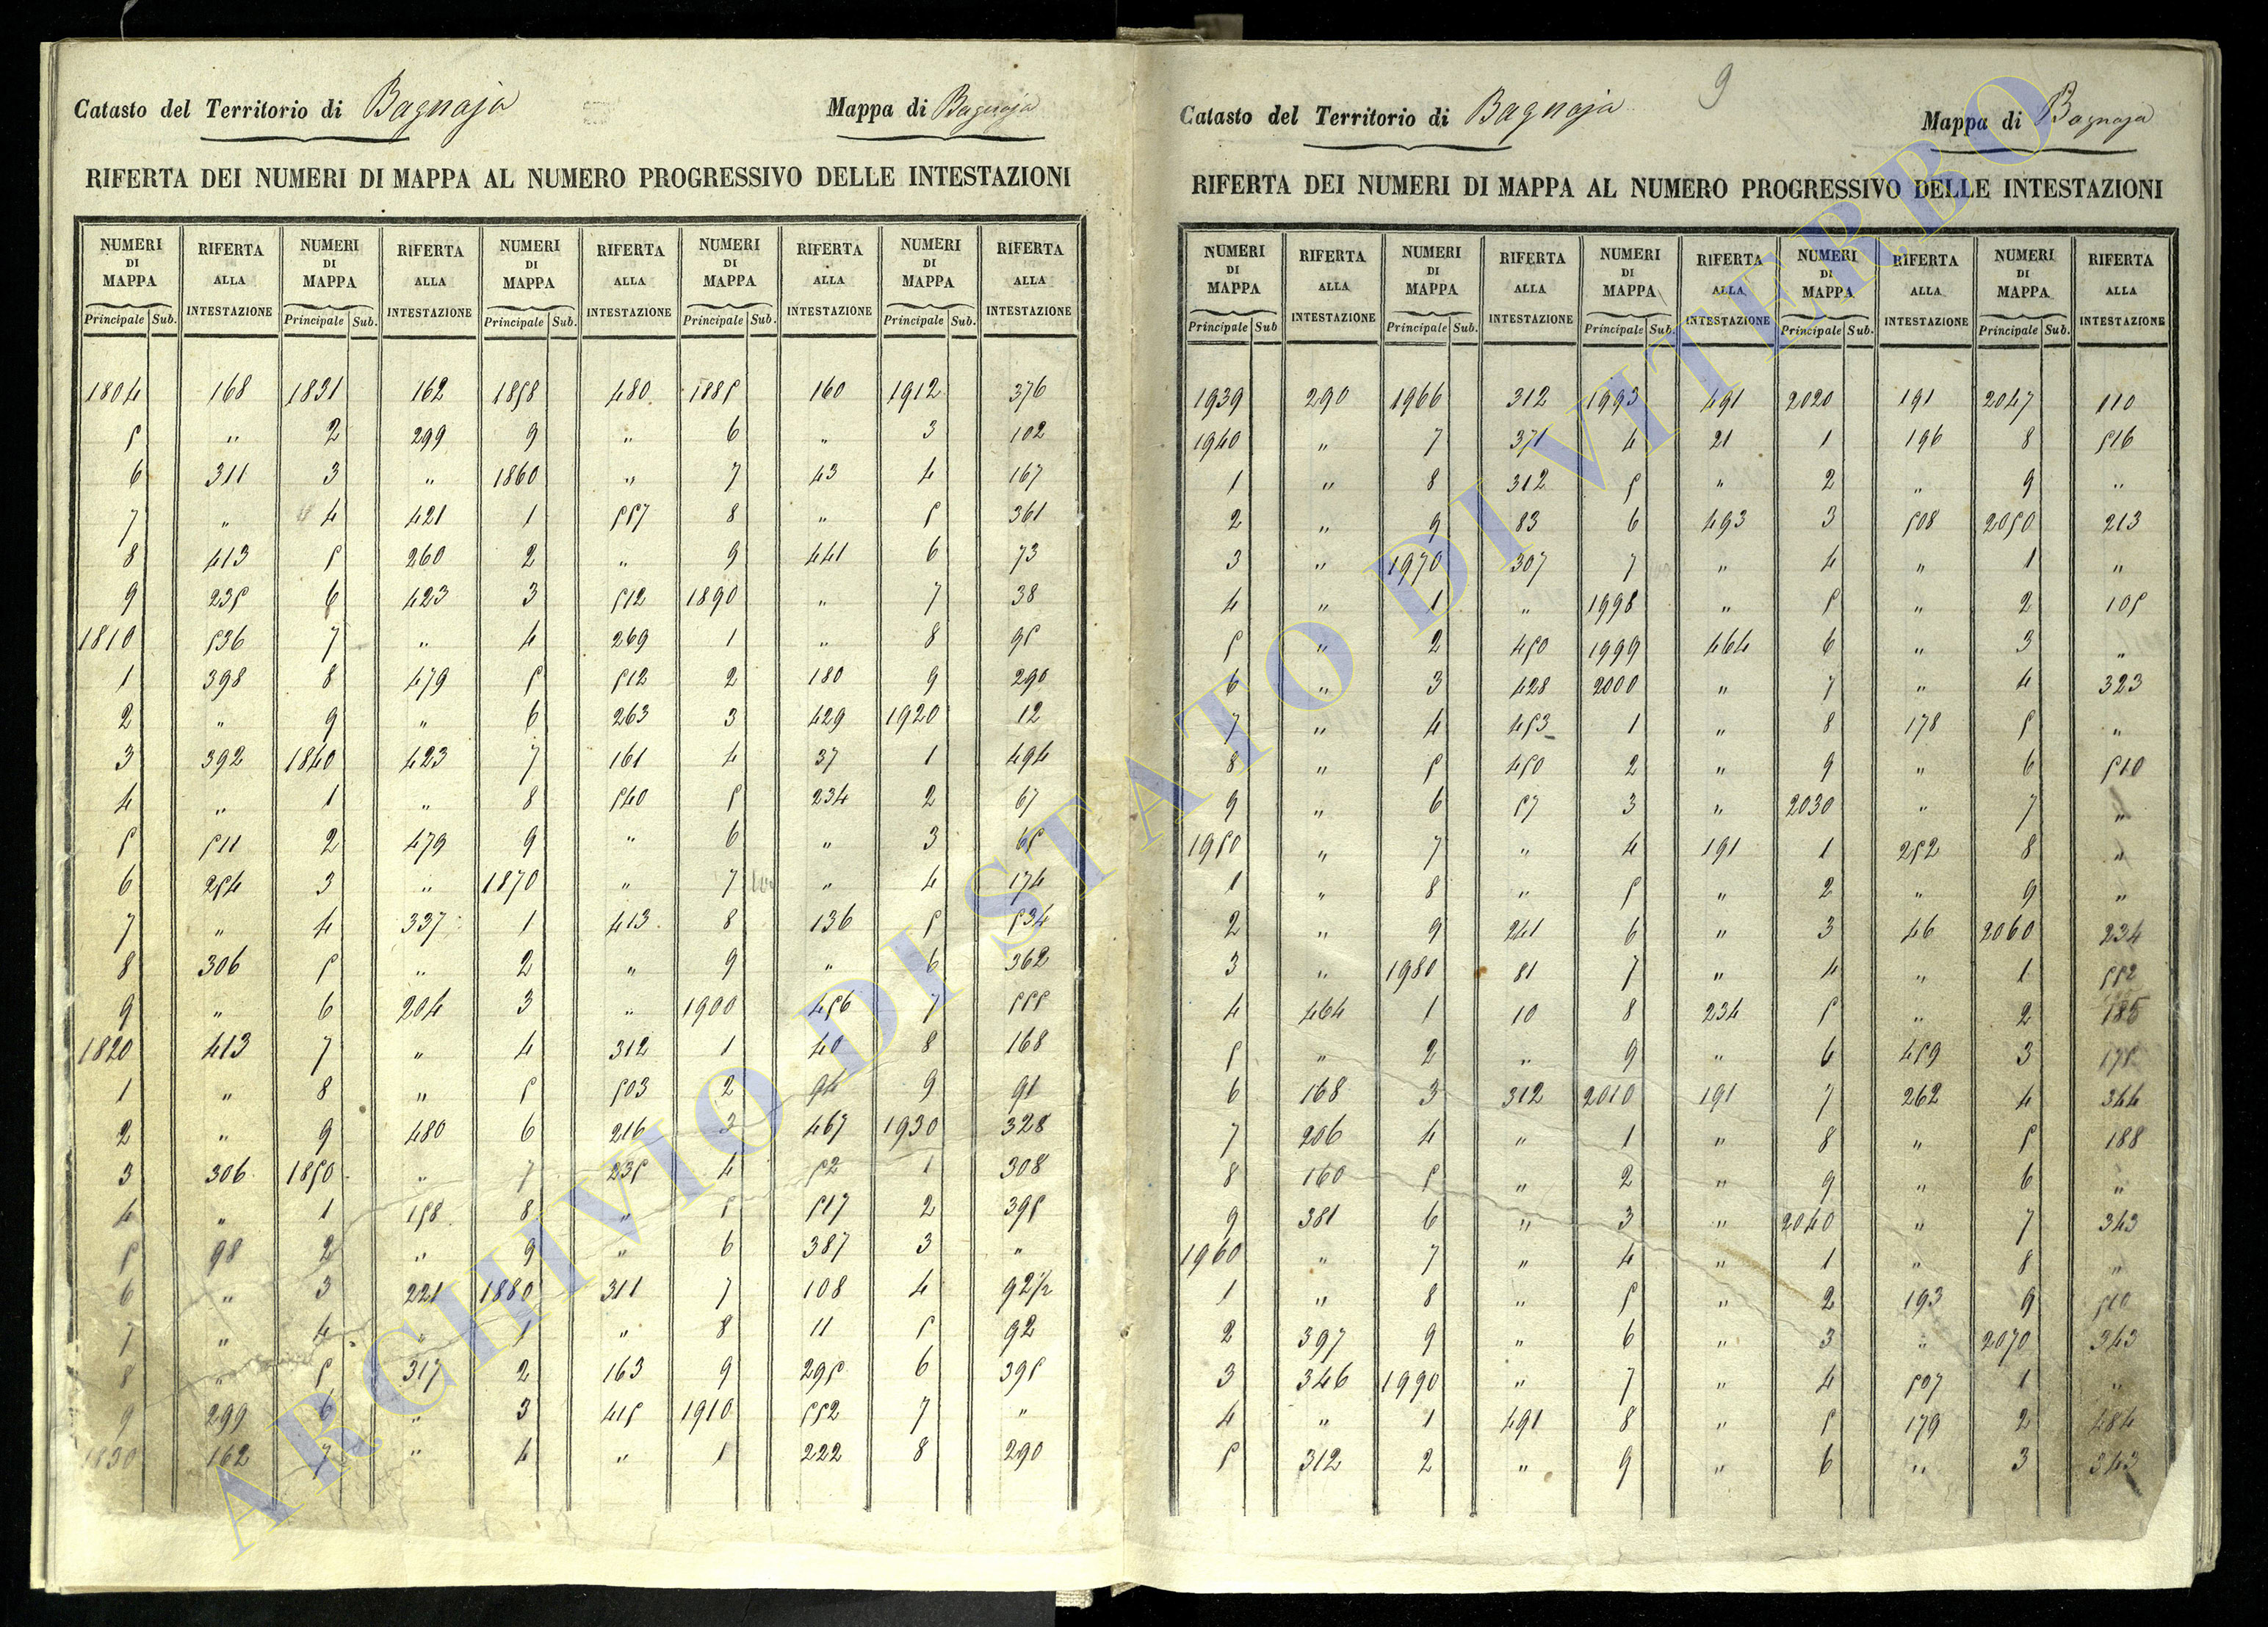 Catasto del Territorio di Bagnaja Mappa di Bagnaja
RIFERTA DEI NUMERI DI MAPPA AL NUMERO PROGRESSIVO DELLE INTESTAZIONI
NUMERI DI MAPPA RIFERTA ALLA INTESTAZIONE NUMERI DI MAPPA RIFERTA ALLA INTESTAZIONE NUMERI DI MAPPA RIFERTA ALLA INTESTAZIONE NUMERI DI MAPPA RIFERTA ALLA INTESTAZIONE NUMERI DI MAPPA RIFERTA ALLA INTESTAZIONE
Principale Sub. Principale Sub. Principale Sub. Principale Sub. Principale Sub.
1804 168 1831 162 1858 480 1885 160 1912 376
5 " 2 299 9 " 6 " 3 102
6 311 3 " 1860 " 7 43 4 167
7 " 4 421 1 557 8 " 5 361
8 413 5 260 2 " 9 441 6 73
9 235 6 423 3 512 1890 " 7 38
1810 536 7 " 4 269 1 " 8 95
1 398 8 479 5 512 2 180 9 290
2 " 9 " 6 263 3 429 1920 12
3 392 1840 423 7 161 4 37 1 494
4 " 1 " 8 540 5 234 2 67
5 511 2 479 9 " 6 " 3 65
6 254 3 " 1870 " 7 " 4 174
7 " 4 337 1 413 8 136 5 534
8 306 5 " 2 " 9 " 6 362
9 " 6 204 3 " 1900 456 7 555
1820 413 7 " 4 312 1 40 8 168
1 " 8 " 5 503 2 94 9 91
2 " 9 480 6 216 3 467 1930 328
3 306 1850 " 7 235 4 52 1 308
4 " 1 158 8 " 5 517 2 395
5 98 2 " 9 " 6 387 3 "
6 " 3 221 1880 311 7 108 4 92 1/2
7 " 4 " 1 " 8 11 5 92
8 " 5 317 2 163 9 295 6 395
9 299 6 " 3 415 1910 552 7 "
1830 162 7 " 4 " 1 222 8 290
9
Catasto del Territorio di Bagnaja Mappa di Bagnaja
RIFERTA DEI NUMERI DI MAPPA AL NUMERO PROGRESSIVO DELLE INTESTAZIONI
NUMERI DI MAPPA RIFERTA ALLA INTESTAZIONE NUMERI DI MAPPA RIFERTA ALLA INTESTAZIONE NUMERI DI MAPPA RIFERTA ALLA INTESTAZIONE NUMERI DI MAPPA RIFERTA ALLA INTESTAZIONE NUMERI DI MAPPA RIFERTA ALLA INTESTAZIONE
Principale Sub Principale Sub. Principale Sub. Principale Sub. Principale Sub.
1939 290 1966 312 1993 491 2020 191 2047 110
1940 " 7 371 4 21 1 196 8 516
1 " 8 312 5 " 2 " 9 "
2 " 9 83 6 493 3 508 2050 213
3 " 1970 307 7 " 4 " 1 "
4 " 1 " 1998 " 5 " 2 105
5 " 2 450 1999 464 6 " 3 "
6 " 3 428 2000 " 7 " 4 323
7 " 4 453 1 " 8 178 5 "
8 " 5 450 2 " 9 " 6 510
9 " 6 57 3 " 2030 " 7 "
1950 " 7 " 4 191 1 252 8 "
1 " 8 " 5 " 2 " 9 "
2 " 9 241 6 " 3 46 2060 234
3 " 1980 81 7 " 4 " 1 552
4 464 1 10 8 234 5 " 2 185
5 " 2 " 9 " 6 459 3 175
6 168 3 312 2010 191 7 262 4 344
7 206 4 " 1 " 8 " 5 188
8 160 5 " 2 " 9 " 6 "
9 381 6 " 3 " 2040 " 7 343
1960 " 7 " 4 " 1 " 8 "
1 " 8 " 5 " 2 193 9 510
2 397 9 " 6 " 3 " 2070 343
3 346 1990 " 7 " 4 507 1 "
4 " 1 491 8 " 5 179 2 484
5 312 2 " 9 " 6 " 3 343
ARCHIVIO DI STATO DI VITERBO